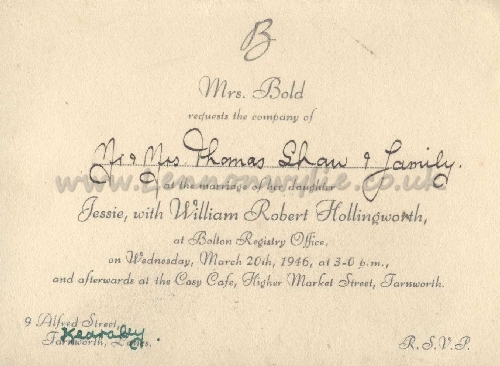 B
Mrs. Bold
requests the company of
Mr & Mrs Thomas Shaw & Family.
www.lennonwylie.co.uk
at the marriage of her daughter
Jessie, with William Robert Hollingworth,
at Bolton Registry Office,
on Wednesday, March 20th, 1946, at 3-0 p.m.,
and afterwards at the Cosy Cafe, Higher Market Street, Farnworth.
9 Alfred Street,
Kearsley.
Farnworth, Lancs.
R.S.V.P.